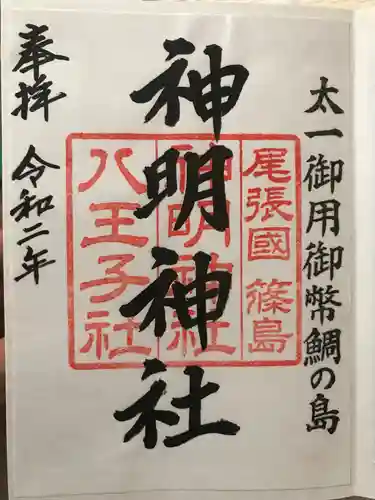 太一御用御幣鯛の島
神明神社
奉拝
令和二年
尾張國 篠島
神明神社
八王子社